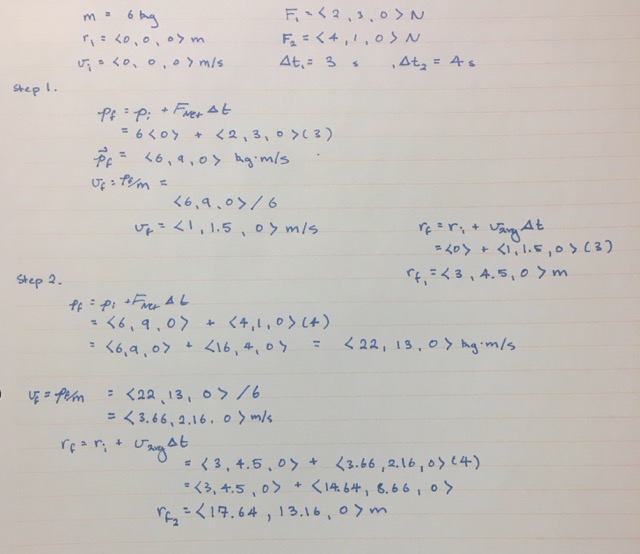 m = 6 kg
r₁ = <0, 0, 0> m
v₁ = <0, 0, 0> m/s
F₁ = <2, 3, 0> N
F₂ = <4, 1, 0> N
Δt₁ = 3 s , Δt₂ = 4 s
Step 1.
pf = pi + FNet Δt
= 6<0> + <2, 3, 0>(3)
p⃗f = <6, 9, 0> kg·m/s
vf = pf/m =
<6, 9, 0> / 6
vf = <1, 1.5, 0> m/s
rf = ri + vavg Δt
= <0> + <1, 1.5, 0>(3)
rf₁ = <3, 4.5, 0> m
Step 2.
pf = pi + FNet Δt
= <6, 9, 0> + <4, 1, 0>(4)
= <6, 9, 0> + <16, 4, 0> = <22, 13, 0> kg·m/s
vf = pf/m = <22, 13, 0> / 6
= <3.66, 2.16, 0> m/s
rf = ri + vavg Δt
= <3, 4.5, 0> + <3.66, 2.16, 0>(4)
= <3, 4.5, 0> + <14.64, 8.66, 0>
rf₂ = <17.64, 13.16, 0> m